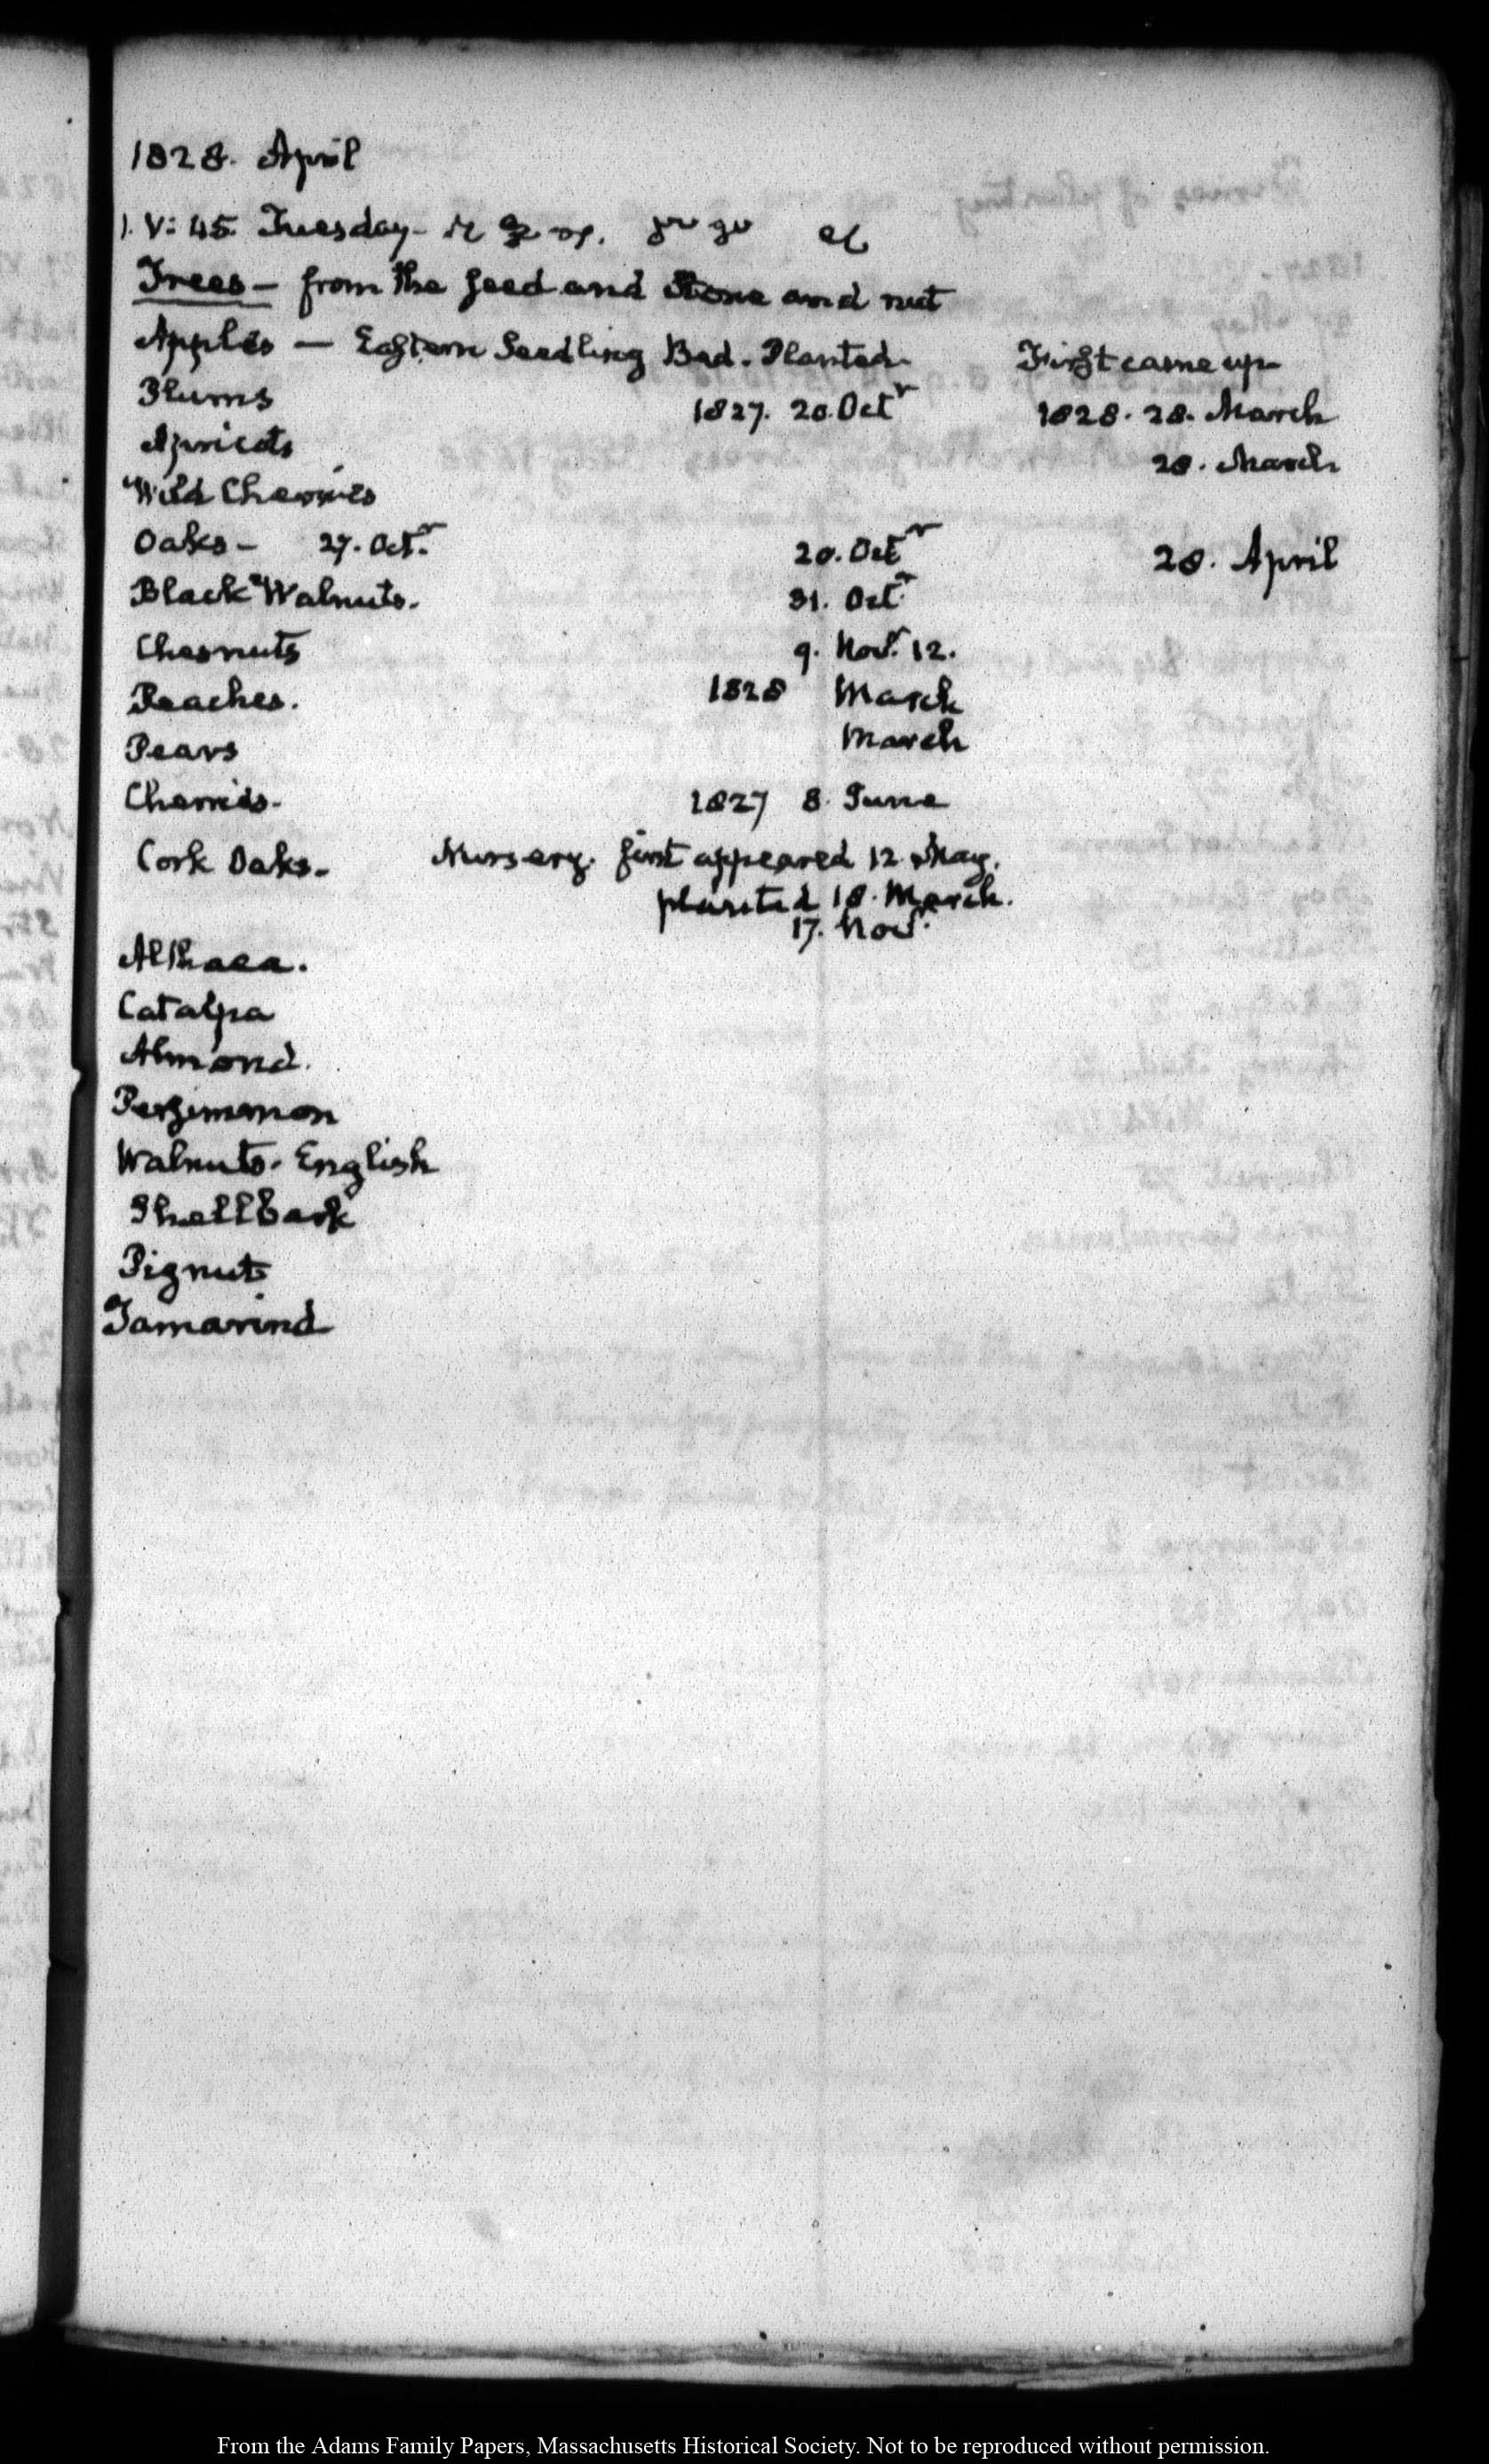 1828. April
1. V: 45. Tuesday-
Trees - from the seed and Stone and nut
Apples - Eastern Seedling Bed. Planted. First came up
Plums 1827. 20. Octr 1828. 28. March
Apricots 28. March
Wild Cherries
Oaks - 27. Octr. 20. Octr 28. April
Black Walnuts. 31. Octr.
Chesnuts 9. Novr. 12.
Peaches. 1828 March
Pears March
Cherries. 1827 8. June
Cork Oaks. Nursery. first appeared 12. May.
planted 18. March.
17. Novr.
Althaea.
Catalpa
Almond.
Persimmon
Walnuts. English
Shellbark
Pignut
Tamarind
From the Adams Family Papers, Massachusetts Historical Society. Not to be reproduced without permission.